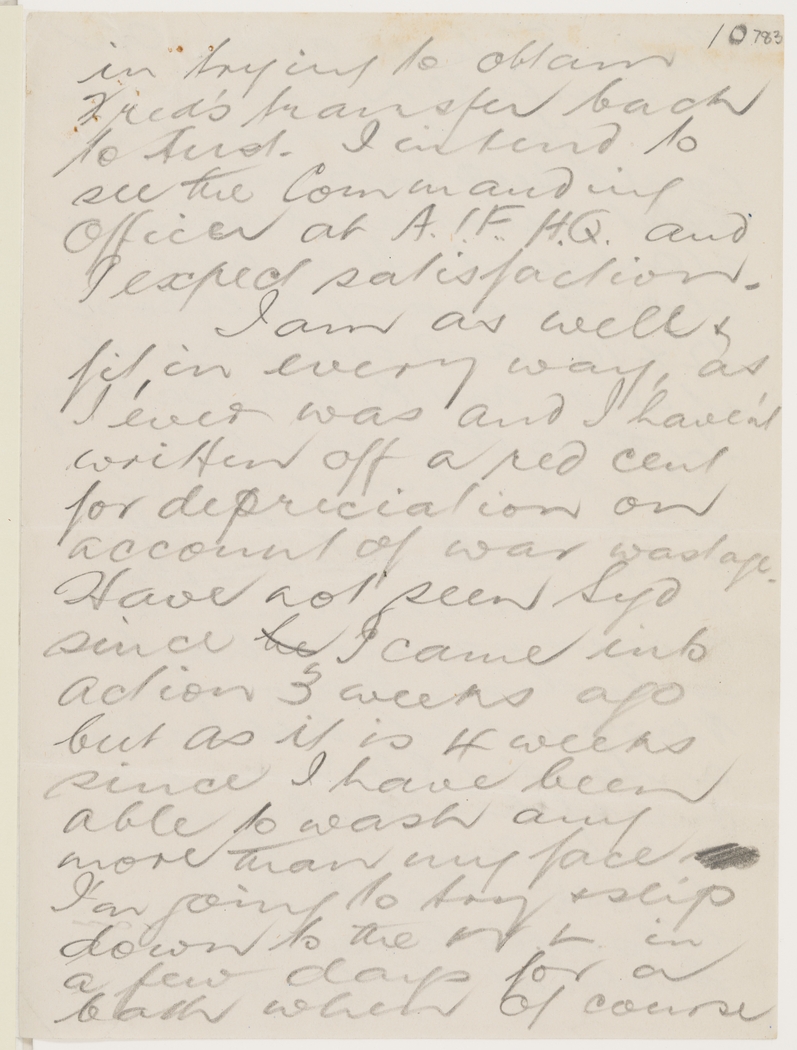 10 783
in trying to obtain
Fred's transfer back
to Aust. I intend to
see the Commanding
Officer at A.I.F. H.Q. and
I expect satisfaction.
I am as well &
fit, in every way, as
I ever was and I haven't
written off a red cent
for depreciation on
account of war wastage.
Have not seen Syd
since he I came into
action 3 weeks ago
but as it is 4 weeks
since I have been
able to wash any
more than my face
I'm going to try & slip
down to the in
a few days for a
bath when of course